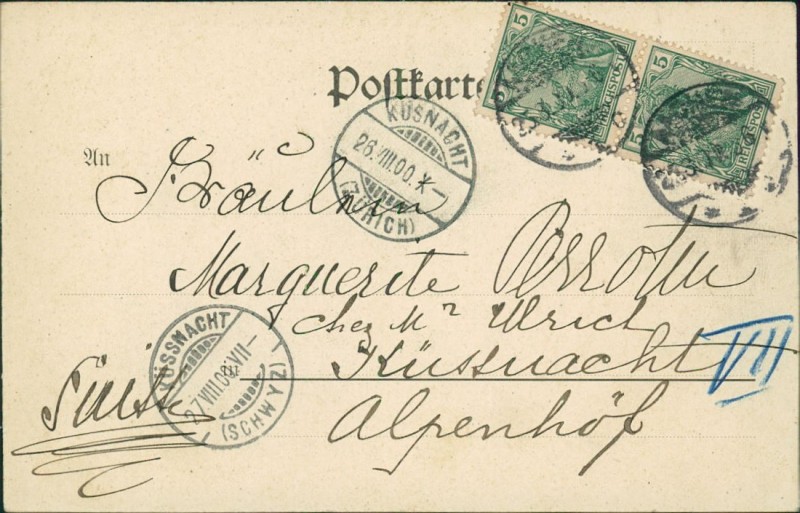 Postkarte
5 REICHSPOST
5 REICHSPOST
KÜSNACHT
26.VIII.00.✶–
(ZÜRICH)
An
Fräulein
Marguerite
chez Mr Ulrich
in
Küssnacht
VII
Suisse
Alpenhof
KÜSSNACHT
27.VIII.00.VII–
(SCHWYZ)